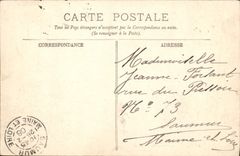 CARTE POSTALE
Tous les Pays étrangers n'acceptent pas la Correspondance au recto.
(Se renseigner à la Poste)
CORRESPONDANCE
ADRESSE
Mademoiselle
Jeanne
rue du
No 73
Saumur
Maine et Loire
SAUMUR
MAINE ET LOIRE